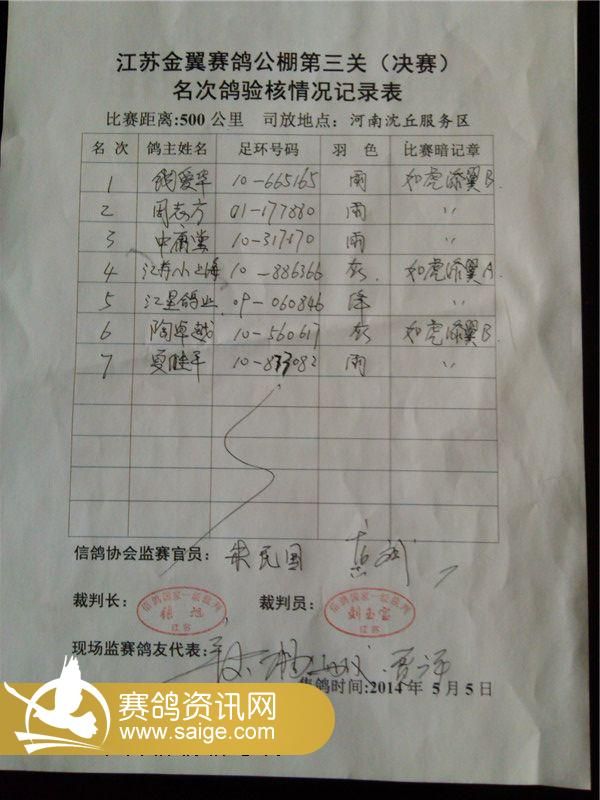 江苏金翼赛鸽公棚第三关（决赛）
名次鸽验核情况记录表
比赛距离:500 公里 司放地点：河南沈丘服务区
名 次 鸽主姓名 足环号码 羽 色 比赛暗记章
1 钱爱华 10-665165 雨 如虎添翼B.
2 周志方 01-177880 雨 〃
3 中 堂 10-317170 雨 〃
4 江苏小上海 10-886366 灰. 如虎添翼A.
5 江星鸽业. 09-060846 绛 〃
6 陶卓越 10-560617 灰 如虎添翼B.
7 夏 平 10-833082 雨 〃
信鸽协会监赛官员： 朱民国
裁判长： 信鸽国家一级裁判 张旭 江苏 裁判员： 信鸽国家一级裁判 刘玉宝 江苏
现场监赛鸽友代表：
集鸽时间:2014 年 5 月 5 日
赛鸽资讯网
www.saige.com